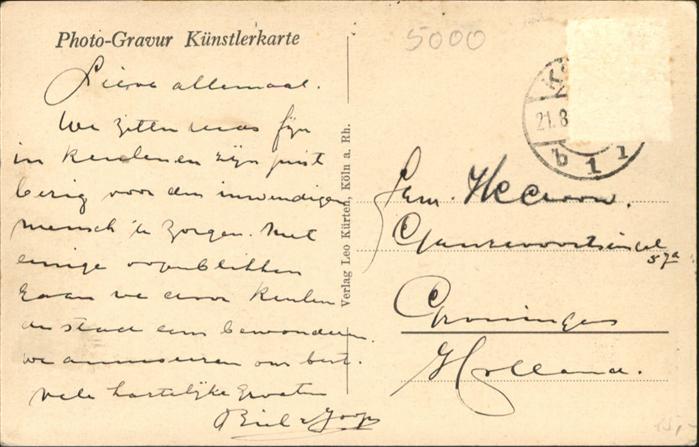 Photo-Gravur Künstlerkarte
5000
Lieve allemaal.
We zitten fijn
in Keulen en zijn juist
bezig voor den inwendigen
mensch te zorgen. Met
eenige oogenblikken
gaan we door Keulen
de stad eens bewonderen.
we amuseeren ons best.
vele hartelijke groeten
Verlag Leo Kürten, Köln a. Rh.
21.8
b 1 1
Fam.
57a
Groningen
Holland.
15,-